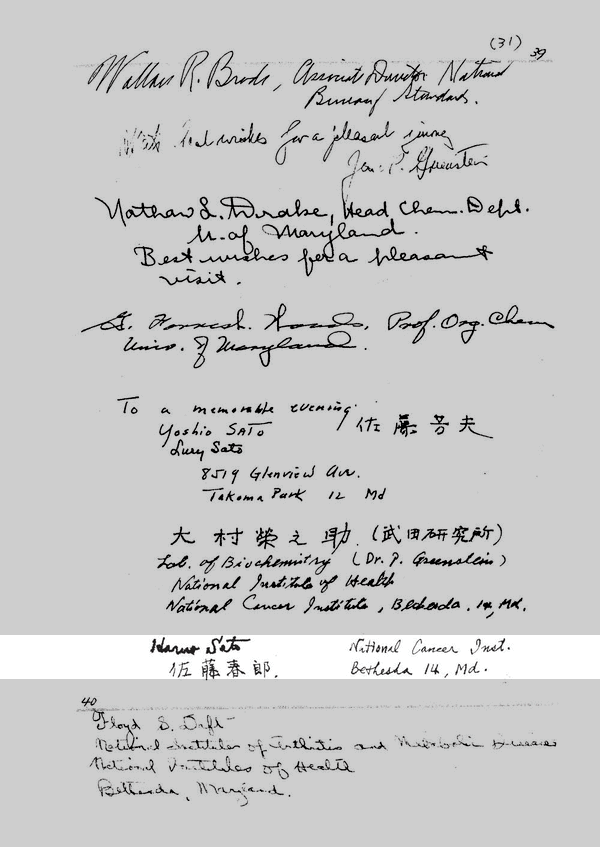 (31) 39
Wallace R. Brode, Associate Director National
Bureau of Standards.
With best wishes for a pleasant journey
Jesse P. Greenstein
Nathan L. Drake, Head Chem. Dept.
U. of Maryland.
Best wishes for a pleasant
visit.
G. Forrest Woods, Prof. Org. Chem
Univ. of Maryland.
To a memorable evening
Yoshio SATO 佐藤芳夫
Lucy Sato
8519 Glenview Ave.
Takoma Park 12 Md
大村榮之助 (武田研究所)
Lab. of Biochemistry (Dr. J. Greenstein)
National Institute of Health
National Cancer Institute, Bethesda. 14, Md.
Haruo Sato National Cancer Inst.
佐藤春郎. Bethesda 14, Md.
40
Floyd S. Daft
National Institutes of Arthritis and Metabolic Diseases
National Institutes of Health
Bethesda, Maryland.